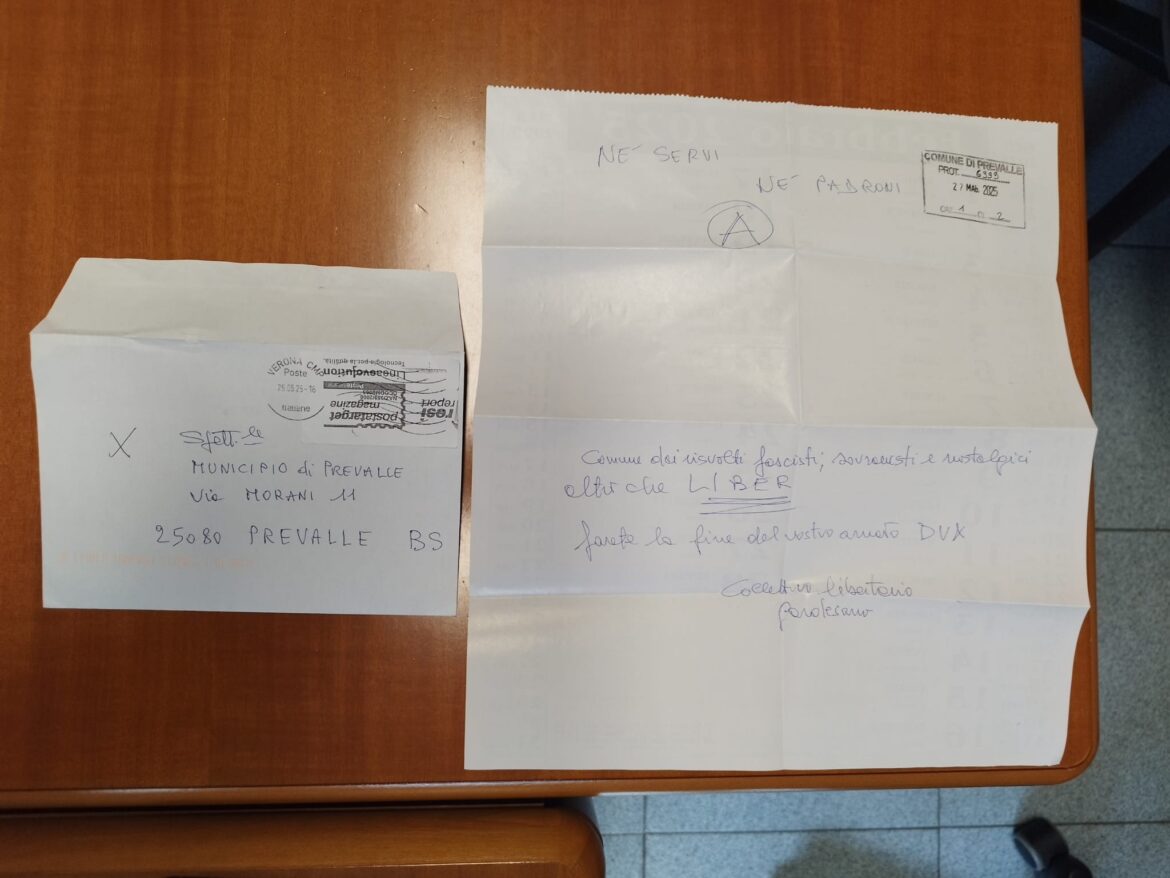 VERONA CMP
Poste
25.03.25-16
Tecnologia per la qualità.
Lineaevolution
postatarget
magazine
resi
report
Spett.le
MUNICIPIO di PREVALLE
Via MORANI 11
25080 PREVALLE BS
NE' SERVI
NE' PADRONI
A
COMUNE DI PREVALLE
PROT. 6393
27 MAR. 2025
CAT. 1 CL. 2
Comune dai risvolti fascisti, sovranisti e nostalgici
altro che LIBER
farete la fine del vostro amato DVX
Collettivo libertario
gardesano
Febbraio 2025